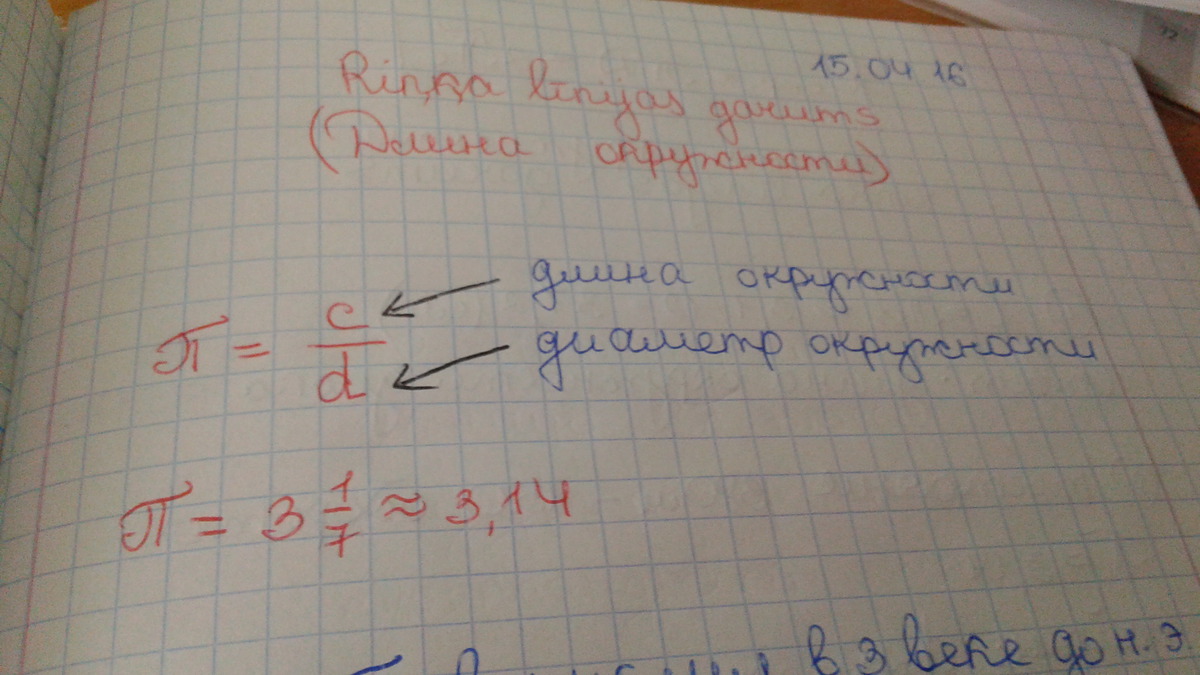 15.04 16
Riņķa līnijas garums
(Длина окружности)
π = c/d
длина окружности
диаметр окружности
π = 3 1/7 ≈ 3,14
в 3 веке до н.э.